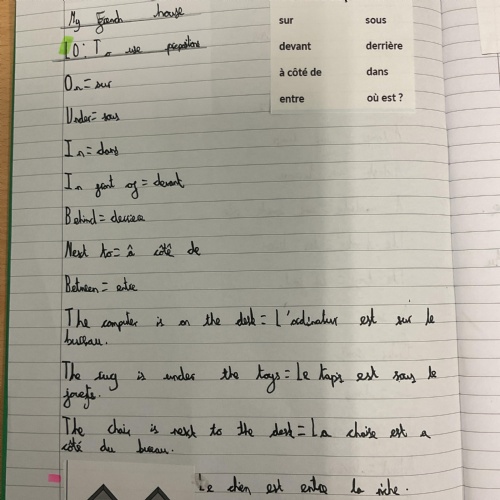 My French house
LO: To use prepositions
sur sous
devant derrière
à côté de dans
entre où est ?
On = sur
Under = sous
In = dans
In front of = devant
Behind = derriere
Next to = â côté de
Between = entre
The computer is on the desk = L'ordinatur est sur le
bureau.
The rug is under the toys = Le tapis est sous le
jouets.
The chair is next to the desk = La chaise est a
côté du bureau.
Le chien est entre la niche.